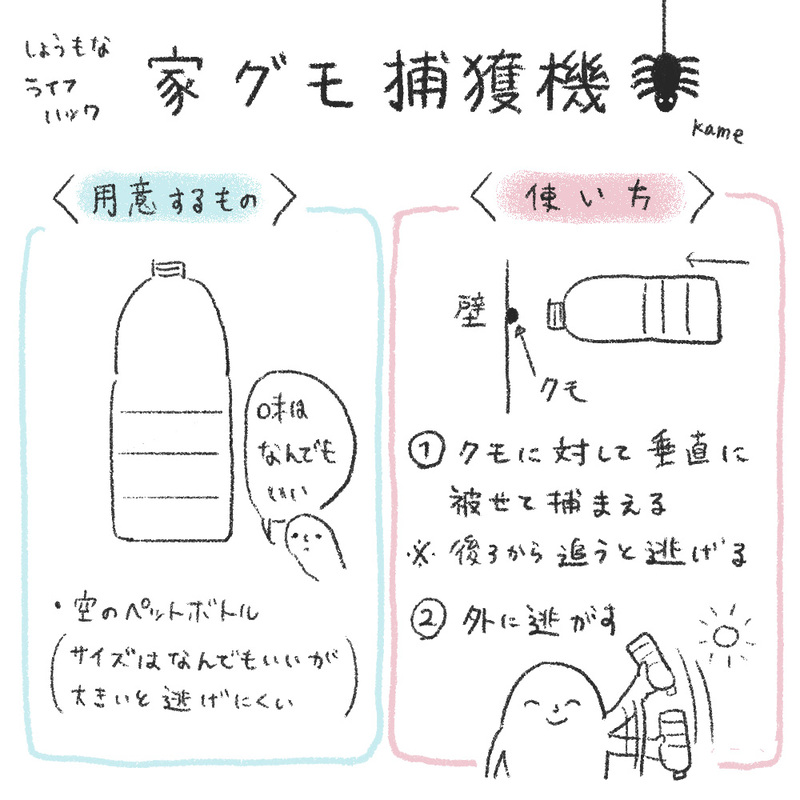 しょうもな
ライフ
ハック
家グモ捕獲機
kame
用意するもの
味は
なんでも
いい
・空のペットボトル
(サイズはなんでもいいが
大きいと逃げにくい)
使い方
壁
クモ
① クモに対して垂直に
被せて捕まえる
※ 後ろから追うと逃げる
② 外に逃がす